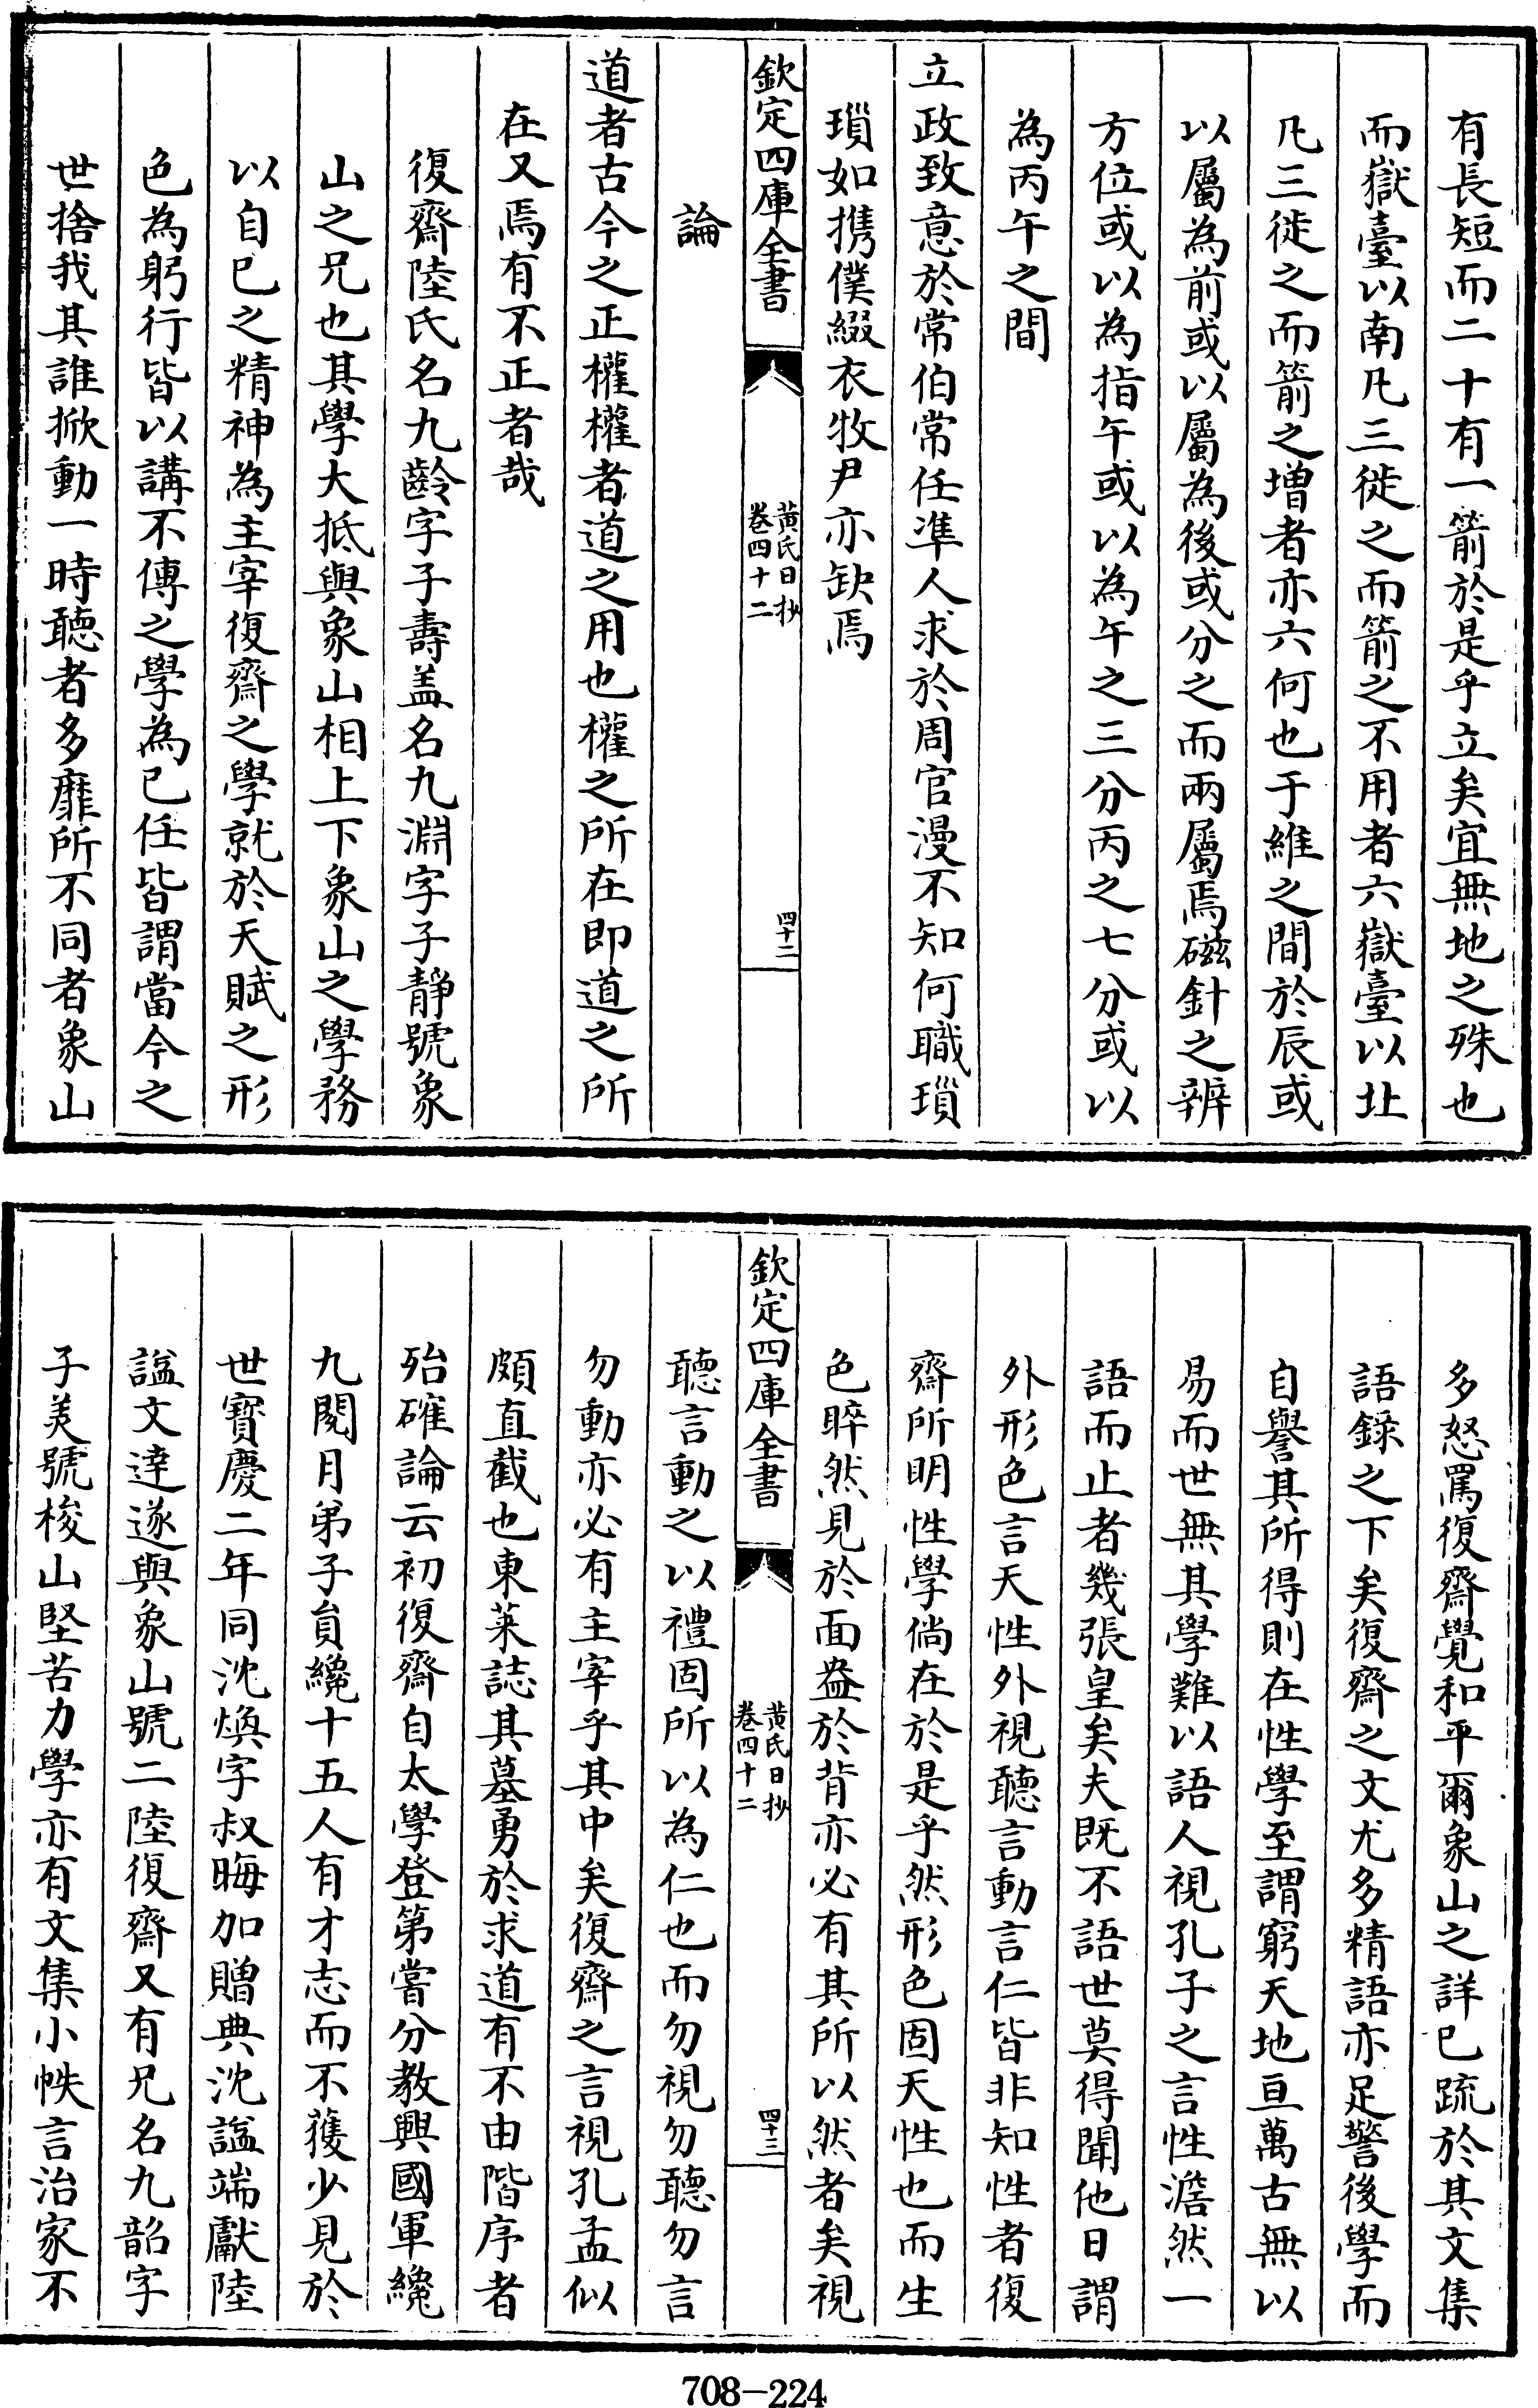 有長短而二十有一箭於是乎立矣宜無地之殊也
而嶽臺以南凡三徙之而箭之不用者六嶽臺以北
凡三徙之而箭之增者亦六何也于維之間於辰或
以屬為前或以屬為後或分之而兩屬焉磁針之辨
方位或以為指午或以為午之三分丙之七分或以
為丙午之間
立政致意於常伯常任準人求於周官漫不知何職瑣
瑣如携僕綴衣牧尹亦缺焉
欽定四庫全書
黄氏日抄
卷四十二
四十二
論
道者古今之正權權者道之用也權之所在即道之所
在又焉有不正者哉
復齋陸氏名九齡字子壽盖名九淵字子靜號象
山之兄也其學大抵與象山相上下象山之學務
以自已之精神為主宰復齋之學就於天賦之形
色為躬行皆以講不傳之學為已任皆謂當今之
世捨我其誰掀動一時聽者多靡所不同者象山
多怒罵復齋覺和平爾象山之詳已疏於其文集
語錄之下矣復齋之文尤多精語亦足警後學而
自譽其所得則在性學至謂窮天地亘萬古無以
易而世無其學難以語人視孔子之言性澹然一
語而止者幾張皇矣夫既不語世莫得聞他日謂
外形色言天性外視聽言動言仁皆非知性者復
齋所明性學倘在於是乎然形色固天性也而生
色睟然見於面盎於背亦必有其所以然者矣視
欽定四庫全書
黄氏日抄
卷四十二
四十三
聽言動之以禮固所以為仁也而勿視勿聽勿言
勿動亦必有主宰乎其中矣復齋之言視孔孟似
頗直截也東萊誌其墓勇於求道有不由階序者
殆確論云初復齋自太學登第嘗分教興國軍纔
九閱月弟子員纔十五人有才志而不獲少見於
世寶慶二年同沈煥字叔晦加贈典沈諡端獻陸
諡文達遂與象山號二陸復齋又有兄名九韶字
子美號梭山堅苦力學亦有文集小帙言治家不
708-224